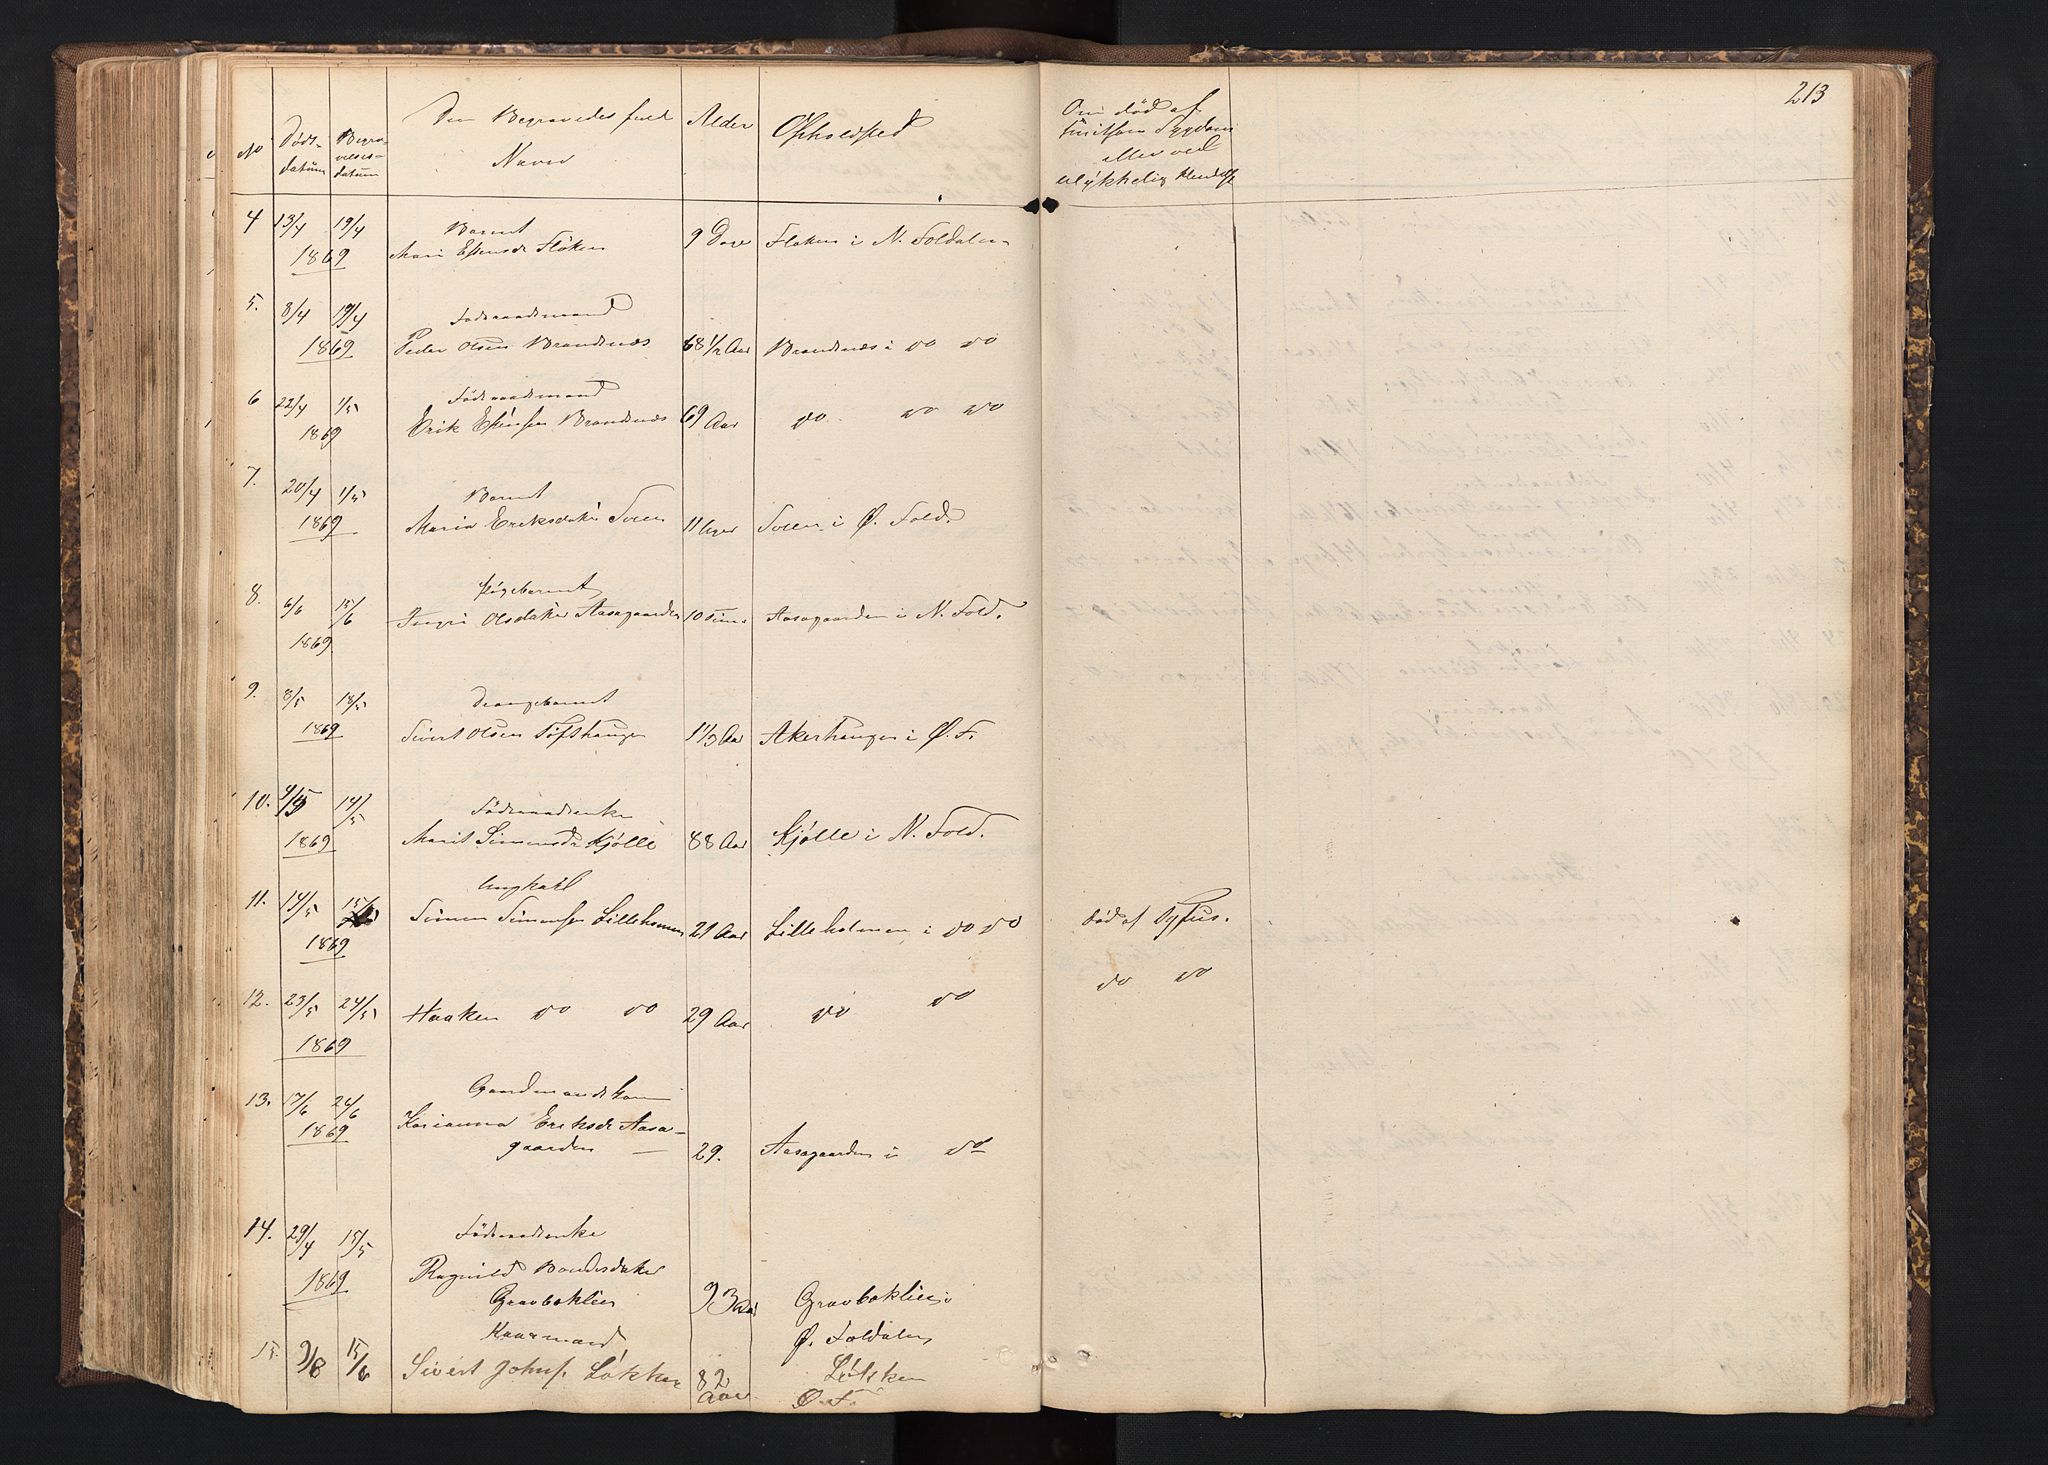 213
No
Døds-
datum
Begra-
velses-
datum
Den Begravedes fulde
Navn
Alder
Opholdsted
Om død af
smitsom Sygdom
eller ved
ulykkelig Hendelse
4 13/4 19/4 Barnet
1869 Mari Estensdr Fløken 9 Dage Floken i N. Foldalen
5. 8/4 19/4 Føderaadsmand
1869 Peder Olsen Brandnæs 68 1/2 Aar Brandnæs i do do
6 22/4 1/5 Føderaadsmand
1869 Erik Estensen Brandnæs 69 Aar do do do
7. 20/4 1/5 Barnet
1869 Maria Eriksdatter 11 Uger i Ø. Fold.
8. 6/6 15/6 Pigebarnet
Ingri Olsdatter Aasgaarden 10 Aasgaarden i N. Fold.
1869
9. 8/5 18/5 Drengebarnet
1869 Sivert Olsen 1 1/3 Aar Akerhaugen i Ø. F.
10. 14/5 Føderaadsenke
1869 Marit Simensdr Kjølle 88 Aar Kjølle i N. Fold.
11. 14/5 15/5 Ungkarl
Simen Simensen Lilleholmen 21 Aar Lilleholmen i do do død af Tyfus.
1869
12. 23/5 24/5 Haaken do do 29 Aar do do do do
1869
13. 17/6 26/6 Gaardmandskone
1869 Karianna Eriksdr Aasa-
gaarden 29. Aasagaarden i do
14. 29/4 15/5 Føderaadsenke
1869 Ragnild Bondesdatter
Gravbaklien 93 Aar Gravbaklien i
Ø. Foldalen
15. 9/8 15/6 Kaarmand
Sivert Johns. Løkken 82 Løkken
Aar Ø. F.